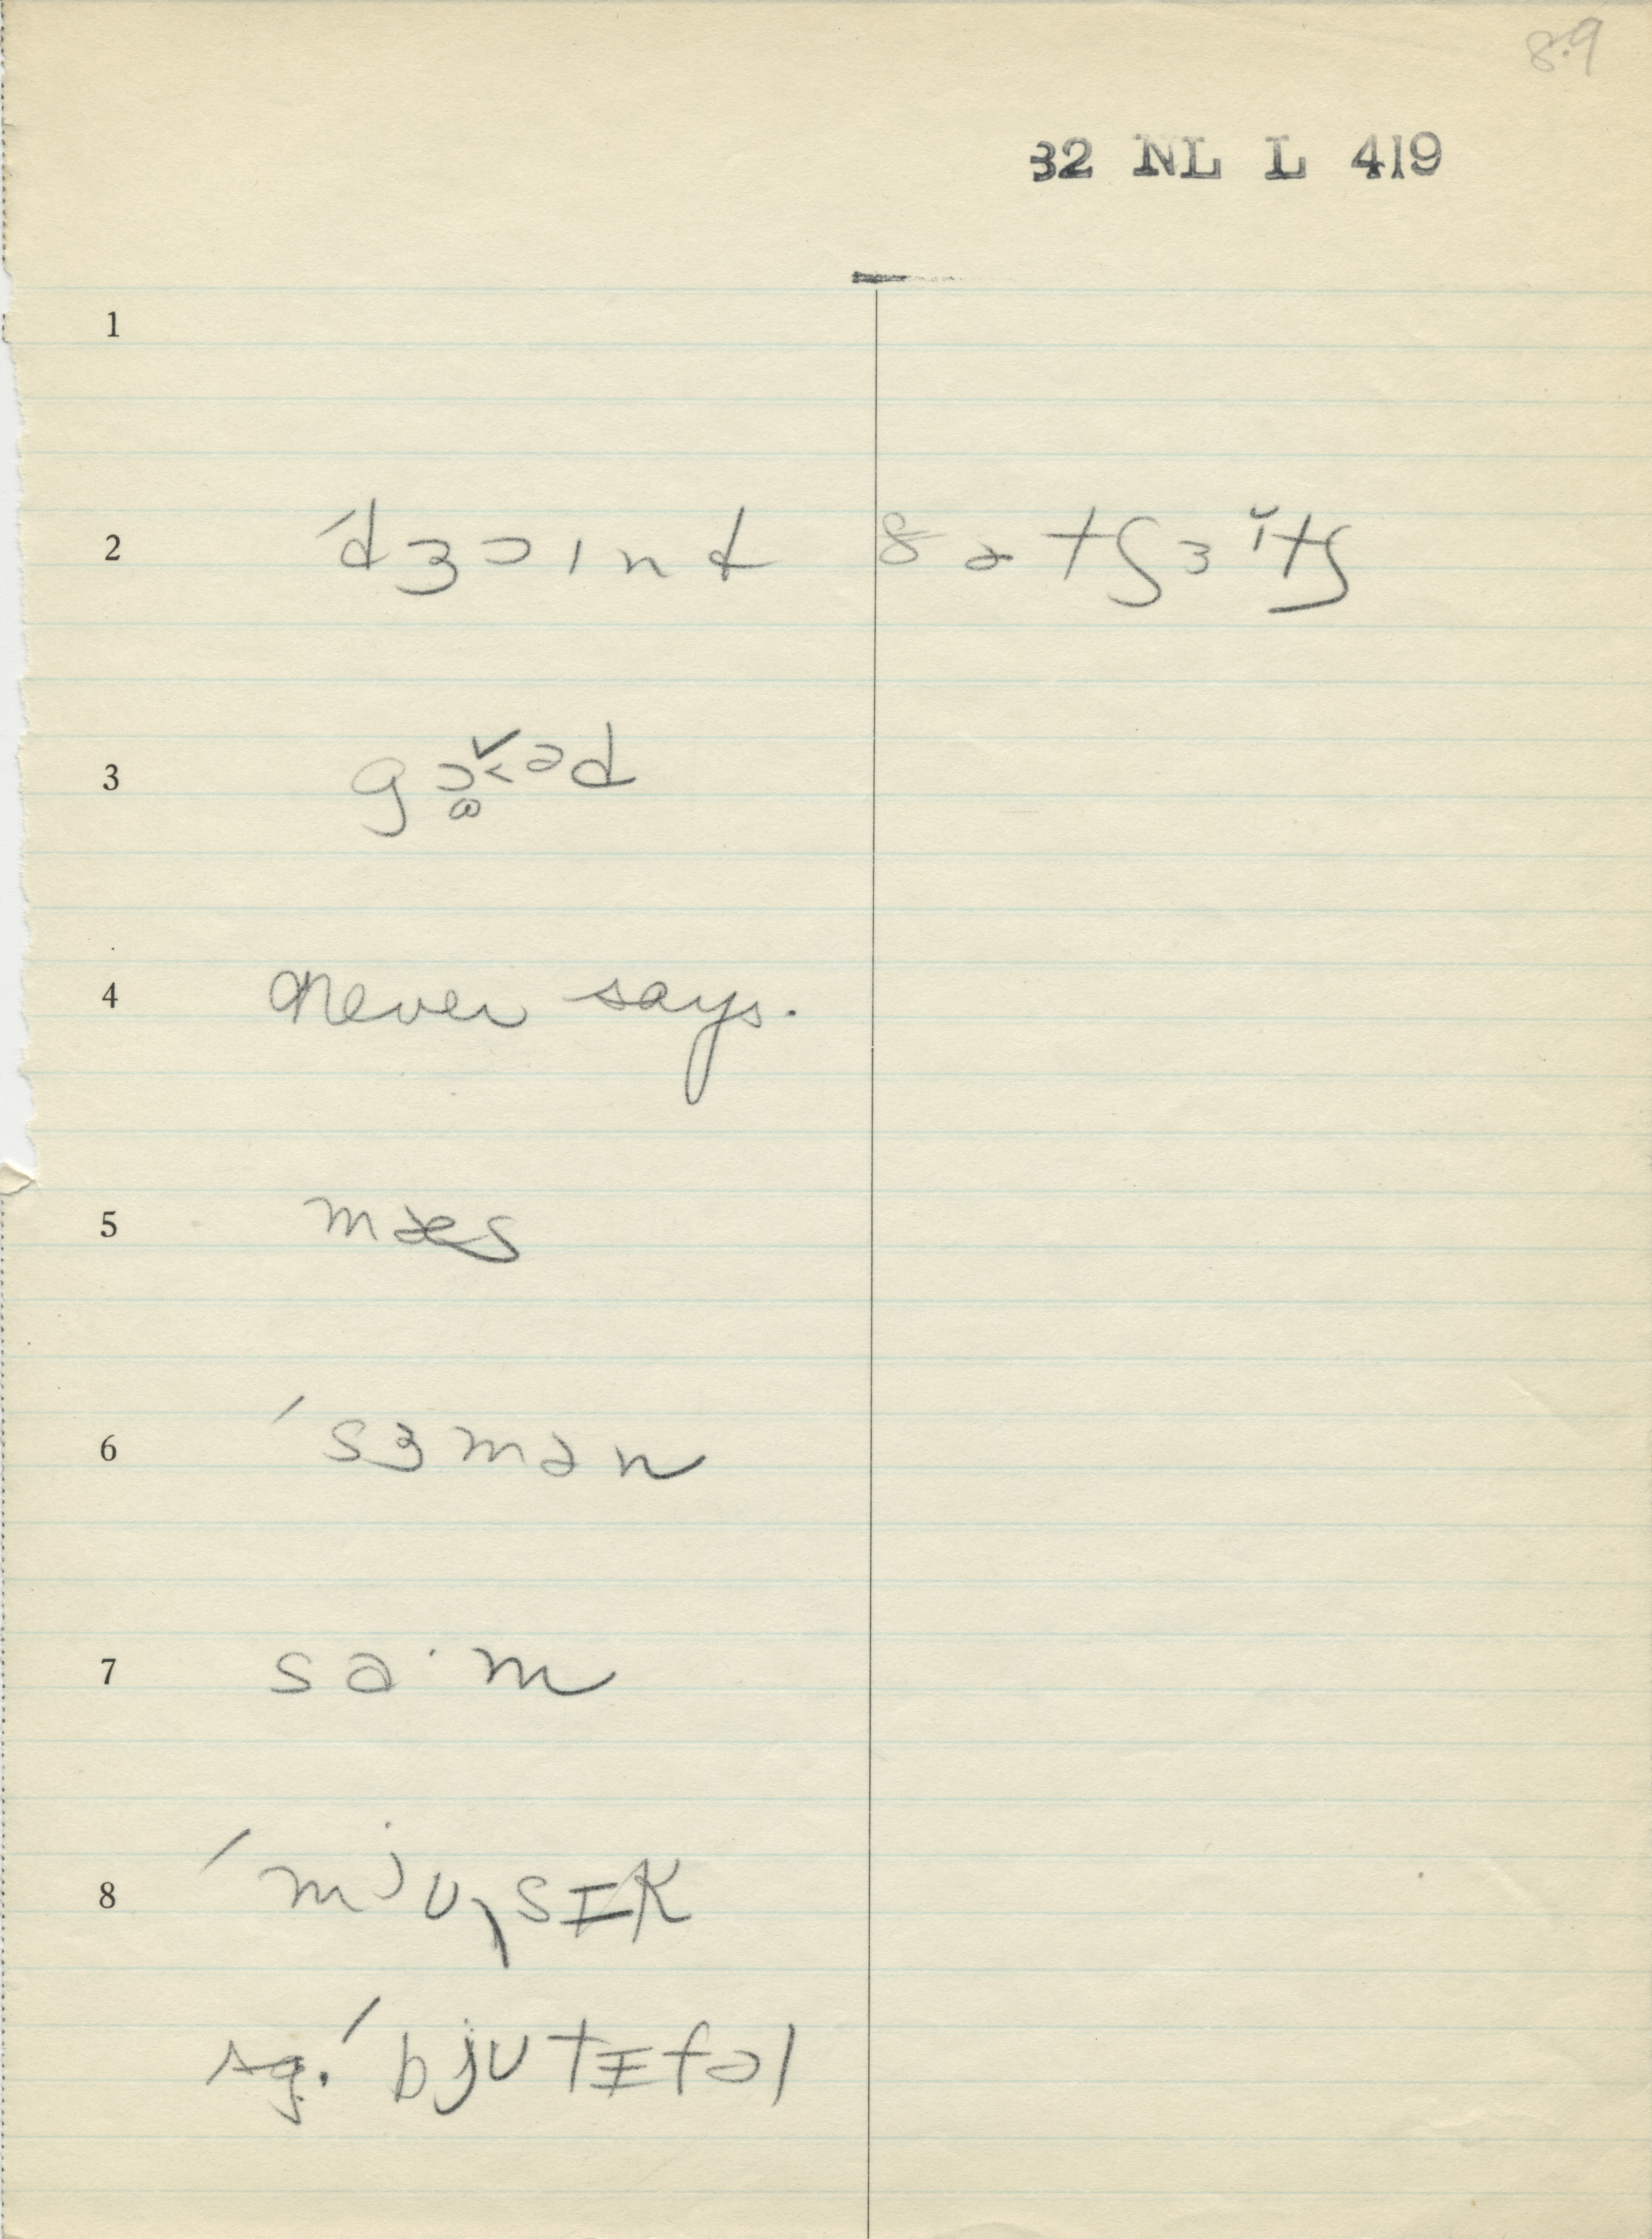 8.9
32 NL L 419
1
2 ˈdʒɔɪnt 8 ətʃɜˇɪtʃ
3 gɔ̬˂əd
4 never says.
5 mæs
6 ˈsɜmən
7 sa·m
8 ˈmjuˎsɪk
sg. ˈbjutɪfəl